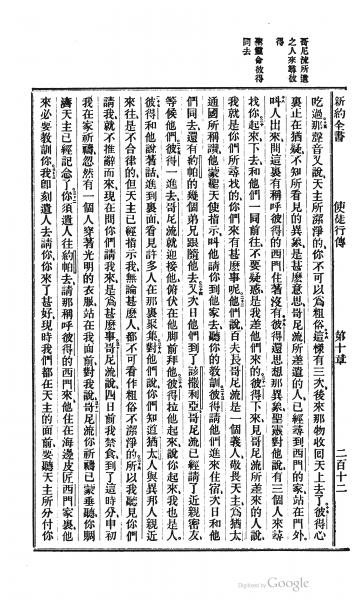 新約全書　使徒行傳　第十章　二百十二
哥尼流所遣
之人來尋彼
得
聖靈命彼得
同去
吃過那聲音又說天主所潔淨的你不可以爲粗俗這樣有三次後來那物收回天上去了彼得心
裏正在猶疑不知所看見的異象是甚麼意思哥尼流所差遣的人已經尋到西門的家站在門外
叫人出來問這裏有稱呼彼得的西門住著沒有彼得還思想那異象聖靈對他說有三個人來尋
找你起來下去和他們一同前往不要疑惑是我差他們來的彼得下來見哥尼流所差來的人說
我就是你們所尋找的你們來有甚麼事呢他們說百夫長哥尼流是一個義人敬畏天主爲猶太
通國所稱讚他蒙聖天使指示叫他請你到他家去聽你的教訓彼得請他們進來住宿次日和他
們同去還有約帕的幾個弟兄跟隨他去又次日他們到了該撒利亞哥尼流已經請了近親密友
等候他們彼得一進去哥尼流就迎接他俯伏在他脚前拜他彼得拉他起來說你起來我也是人
彼得和他說著話進到裏面看見許多人在那裏聚集對他們說你們知道猶太人與異邦人親近
來往是不合律的但天主已經指示我無論甚麼人都不可看作粗俗不潔淨的所以我聽見你們
請我就不推辭而來現在問你們請我來是爲甚麼事哥尼流說四日前我禁食到了這時分申初
我在家祈禱忽然有一個人穿著光明的衣服站在我面前對我說哥尼流你祈禱已蒙垂聽你賙
濟天主已經記念了你須遣人往約帕去請那稱呼彼得的西門來他住在海邊皮匠西門家裏他
來必要教訓你我即刻遣人去請你你來了甚好現時我們都在天主的面前要聽天主所分付你
Digitized by Google